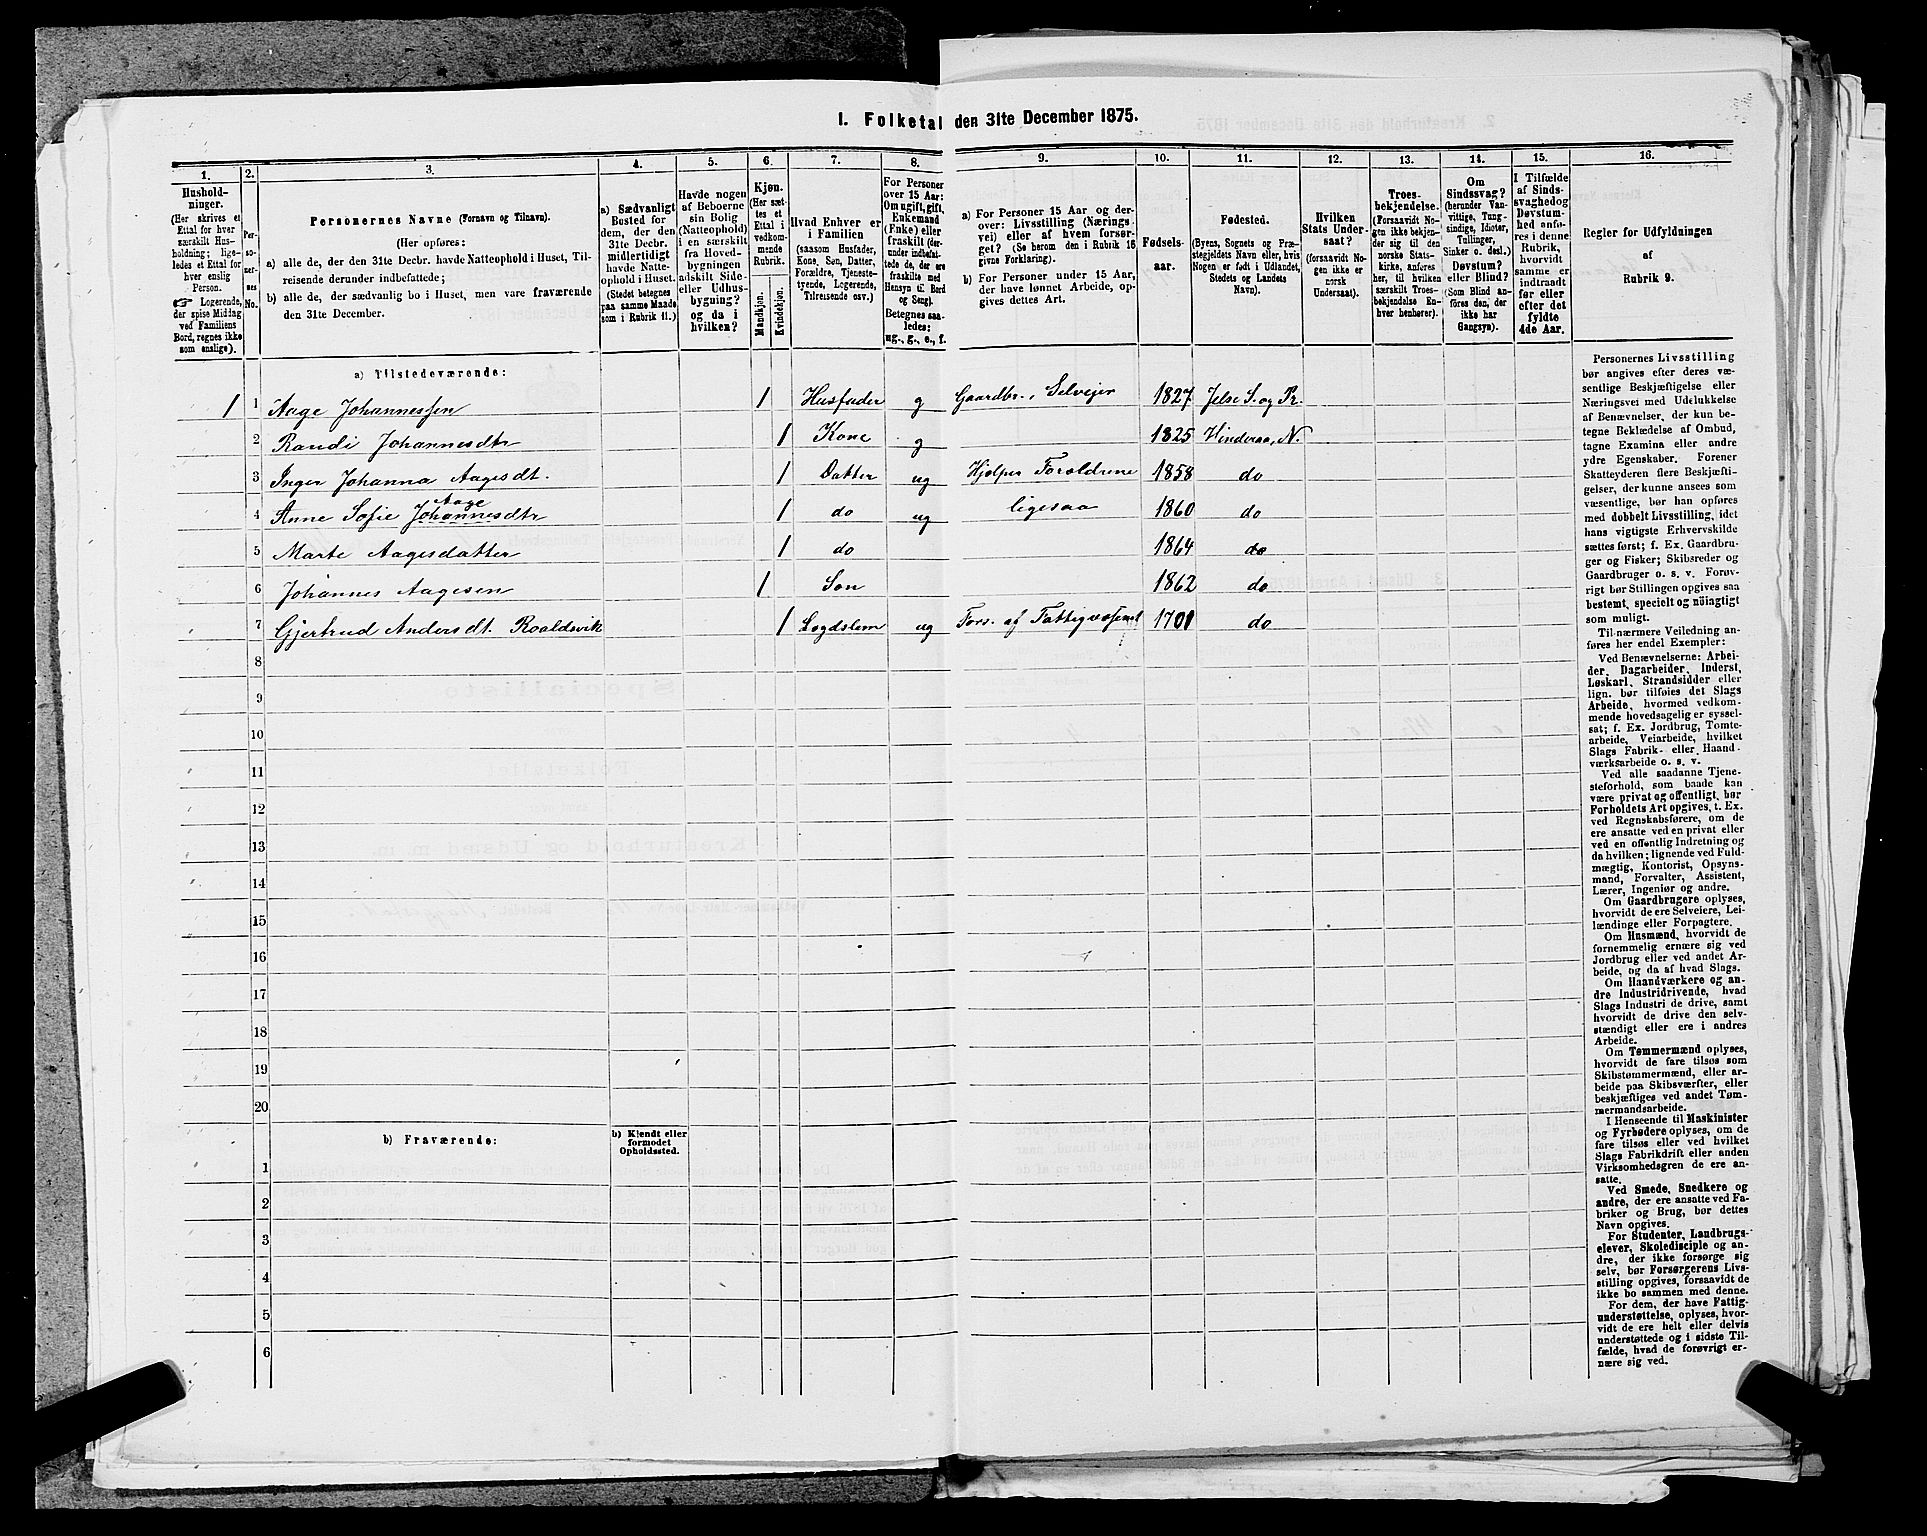 1. Folketal den 31te December 1875.
1. 2. 3. 4. 5. 6. 7. 8. 9. 10. 11. 12. 13. 14. 15. 16.
Hushold-
ninger.
(Her skrives et
Ettal for hver
særskilt Hus-
holdning; lige-
ledes et Ettal for
hver enslig
Person.
☞ Logerende,
der spise Middag
ved Familiens
Bord, regnes ikke
som enslige).
Per-
so-
ner-
nes
No.
Personernes Navne (Fornavn og Tilnavn).
(Her opføres:
a) alle de, der den 31te Decbr. havde Natteophold i Huset, Til-
reisende derunder indbefattede;
b) alle de, der sædvanlig bo i Huset, men vare fraværende
den 31te December.
a) Sædvanligt
Bosted for
dem, der den
31te Decbr.
midlertidigt
havde Natte-
ophold i Huset.
(Stedet betegnes
paa samme Maade
som i Rubrik 11.)
Havde nogen
af Beboerne
sin Bolig
(Natteophold)
i en særskilt
fra Hoved-
bygningen
adskilt Side-
eller Udhus-
bygning?
og da i
hvilken?
Kjøn.
(Her sæt-
tes et
Ettal i
vedkom-
mende
Rubrik.
Mandkjøn.
Kvindekjøn.
Hvad Enhver er
i Familien
(saasom Husfader,
Kone, Søn, Datter,
Forældre, Tjeneste-
tyende, Logerende,
Tilreisende osv.)
For Personer
over 15 Aar:
Om ugift, gift,
Enkemand
(Enke) eller
fraskilt (der-
under indbefat-
tede de, der ere
fraskilte med
Hensyn til Bord
og Seng).
Betegnes saa-
ledes:
ug., g., e., f.
a) For Personer 15 Aar og der-
over: Livsstilling (Nærings-
vei) eller af hvem forsør-
get? (Se herom den i Rubrik 16
givne Forklaring).
b) For Personer under 15 Aar,
der have lønnet Arbeide, op-
gives dettes Art.
Fødsels-
aar.
Fødested.
(Byens, Sognets og Præ-
stegjeldets Navn eller, hvis
Nogen er født i Udlandet,
Stedets og Landets
Navn).
Hvilken
Stats Under-
saat?
(forsaavidt No-
gen ikke er
norsk
Undersaat).
Troes-
bekjendelse.
(Forsaavidt No-
gen ikke bekjen-
der sig til den
norske Stats-
kirke, anføres
her, til hvilken
særskilt Troes-
bekjendelse En-
hver henhører).
Om
Sindssvag?
(herunder Van-
vittige, Tung-
sindige, Idioter,
Tullinger,
Sinker o. desl.)
Døvstum?
eller Blind?
(Som Blind an-
føres den, der
ikke har
Gangsyn).
I Tilfælde
af Sinds-
svaghed og
Døvstum-
hed anfø-
res i denne
Rubrik,
hvorvidt
samme er
indtraadt
før eller
efter det
fyldte
4de Aar.
Regler for Udfyldningen
af
Rubrik 9.
a) Tilstedeværende:
1 1 Aage Johannessen 1 Husfader g Gaardbr., Selvejer 1827 Jelse S. og Pr.
2 Randi Johannesdtr 1 Kone g 1825 Hinderaa, N.
3 Inger Johanna Aagesdt. 1 Datter ug Hjælper Foræeldrene 1858 do
Aage
4 Anne Sofie Johannesdtr 1 do ug ligesaa 1860 do
5 Marte Aagesdatter 1 do 1864 do
6 Johannes Aagesen 1 Søn 1862 do
7 Gjertrud Andersdt. Roaldsvik 1 Lægdslem ug Fors. af Fattigvæsenet do
8
9
10
11
12
13
14
15
16
17
18
19
20
b) Fraværende:
b) Kjendt eller
formodet
Opholdssted.
1
2
3
4
5
6
Personernes Livsstilling
bør angives efter deres væ-
sentlige Beskjæftigelse eller
Næringsvei med Udelukkelse
af Benævnelser, der kun be-
tegne Beklædelse af Ombud,
tagne Examina eller andre
ydre Egenskaber. Forener
Skatteyderen flere Beskjæfti-
gelser, der kunne ansees som
væsentlige, bør han opføres
med dobbelt Livsstilling, idet
hans vigtigste Erhvervskilde
sættes først; f. Ex. Gaardbru-
ger og Fisker; Skibsreder og
Gaardbruger o. s. v. Forøv-
rigt bør Stillingen opgives saa
bestemt, specielt og nöiagtigt
som muligt.
Til nærmere Veiledning an-
føres her endel Exempler:
Ved Benævnelserne: Arbei-
der, Dagarbeider, Inderst,
Løskarl, Strandsidder eller
lign. bør tilføies det Slags
Arbeide, hvormed vedkom-
mende hovedsagelig er syssel-
sat; f. Ex. Jordbrug, Tomte-
arbeide, Veiarbeide, hvilket
Slags Fabrik- eller Haand-
værksarbeide o. s. v.
Ved alle saadanne Tjene-
steforhold, som baade kan
være privat og offentligt, bør
Forholdets Art opgives, t. Ex.
ved Regnskabsførere, om de
ere ansatte ved en privat eller
ved en offentlig Indretning og
da hvilken; lignende ved Fuld-
mægtig, Kontorist, Opsyns-
mand, Forvalter, Assistent,
Lærer, Ingeniør og andre.
Om Gaardbrugere oplyses,
hvorvidt de ere Selveiere, Lei-
lændinge eller Forpagtere.
Om Husmænd, hvorvidt de
fornemmelig ernære sig ved
Jordbrug eller ved andet Ar-
beide, og da af hvad Slags.
Om Haandværkere og an-
dre Industridrivende, hvad
Slags Industri de drive, samt
hvorvidt de drive den selv-
stændigt eller ere i andres
Arbeide.
Om Tømmermænd oplyses,
hvorvidt de fare tilsøs som
Skibstømmermænd, eller ar-
beide paa Skibsværfter, eller
beskjæftiges ved andet Tøm-
mermandsarbeide.
I Henseende til Maskinister
og Fyrbødere oplyses, om de
fare tilsøs eller ved hvilket
Slags Fabrikdrift eller anden
Virksomhedsgren de ere an-
satte.
Ved Smede, Snedkere og
andre, der ere ansatte ved Fa-
briker og Brug, bør dettes
Navn opgives.
For Studenter, Landbrugs-
elever, Skoledisciple og an-
dre, der ikke forsørge sig
selv, bør Forsørgerens Livs-
stilling opgives, forsaavidt de
ikke bo sammen med denne.
For dem, der have Fattig-
understøttelse, oplyses, hvor-
vidt de ere helt eller delvis
understøttede og i sidste Til-
fælde, hvad de forøvrigt er-
nære sig ved.